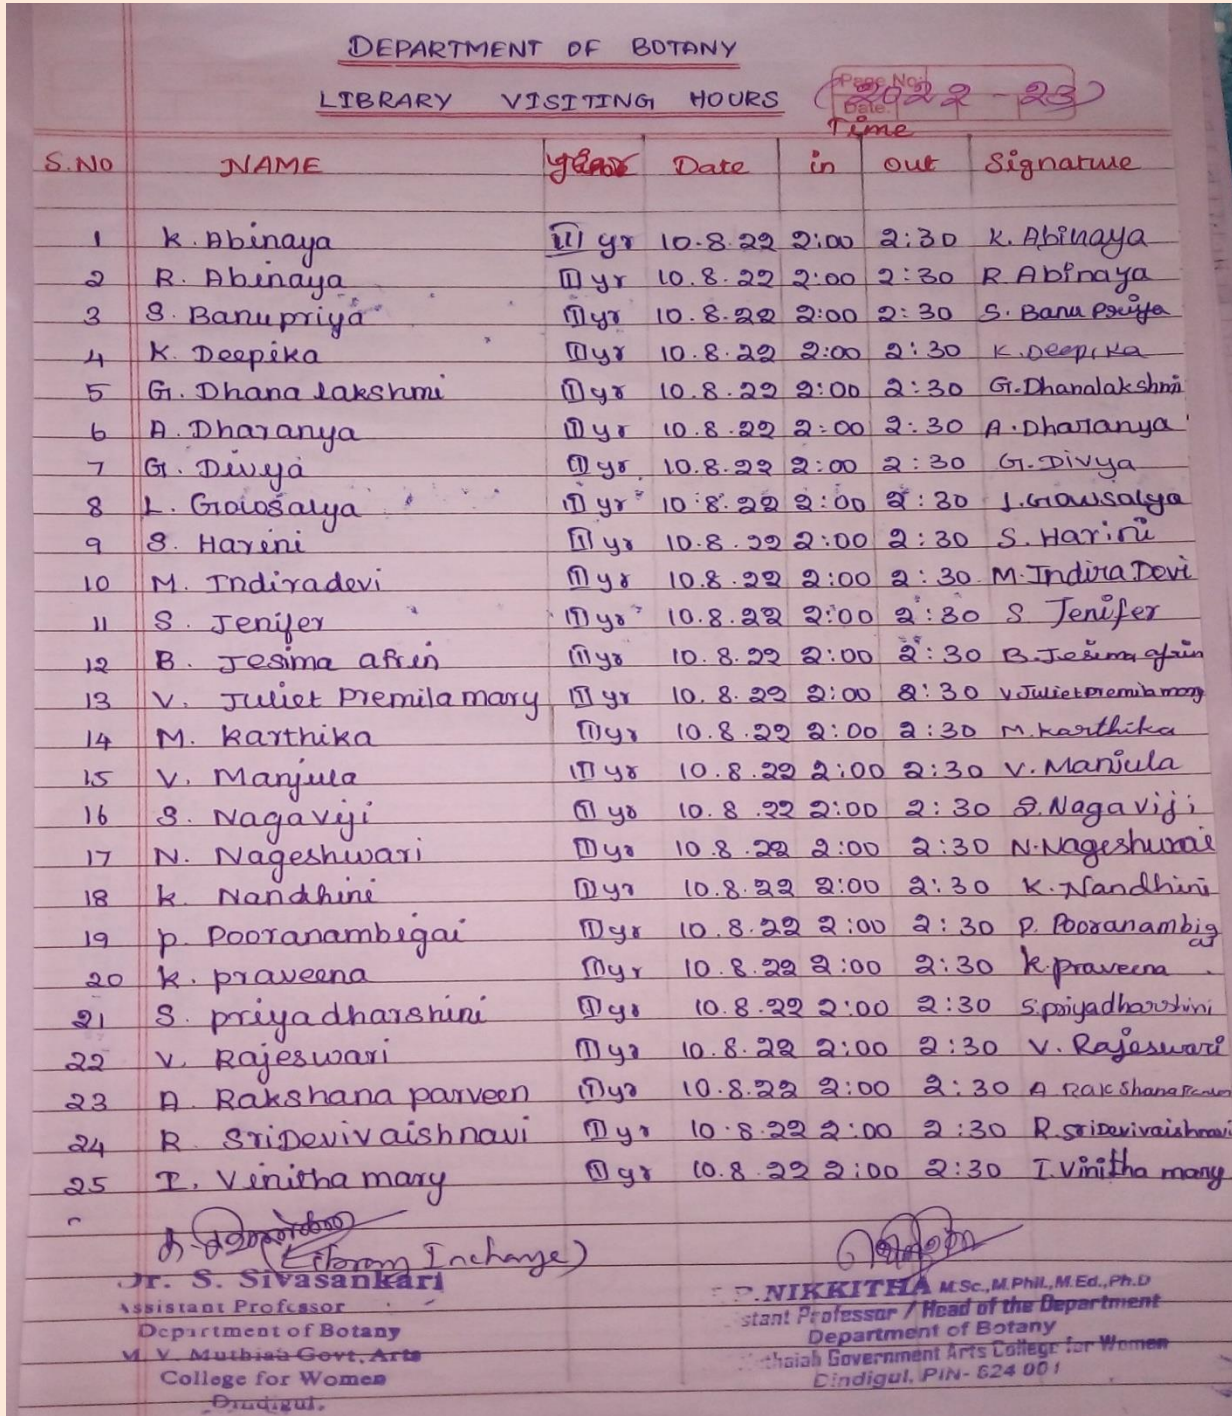 DEPARTMENT OF BOTANY
LIBRARY VISITING HOURS (2022-23)
Page No:
Date:
Time
S.NO NAME year Date in out Signature
1 K. Abinaya III yr 10.8.22 2:00 2:30 K. Abinaya
2 R. Abinaya II yr 10.8.22 2:00 2:30 R. Abinaya
3 S. Banupriya II yr 10.8.22 2:00 2:30 S. Banu Priya
4 K. Deepika II yr 10.8.22 2:00 2:30 K. Deepika
5 G. Dhana lakshmi II yr 10.8.22 2:00 2:30 G. Dhanalakshmi
6 A. Dharanya II yr 10.8.22 2:00 2:30 A. Dharanya
7 G. Divya II yr 10.8.22 2:00 2:30 G. Divya
8 L. Gowsalya II yr 10.8.22 2:00 2:30 L. Gowsalya
9 S. Harini II yr 10.8.22 2:00 2:30 S. Harini
10 M. Indiradevi II yr 10.8.22 2:00 2:30 M. Indira Devi
11 S. Jenifer II yr 10.8.22 2:00 2:30 S Jenifer
12 B. Jesima afrin II yr 10.8.22 2:00 2:30 B. Jesima afrin
13 V. Juliet Premila mary II yr 10.8.22 2:00 2:30 V Juliet premila mary
14 M. Karthika II yr 10.8.22 2:00 2:30 M. Karthika
15 V. Manjula II yr 10.8.22 2:00 2:30 V. Manjula
16 S. Nagaviji II yr 10.8.22 2:00 2:30 S. Nagaviji
17 N. Nageshwari II yr 10.8.22 2:00 2:30 N. Nageshwari
18 K. Nandhini II yr 10.8.22 2:00 2:30 K. Nandhini
19 P. Pooranambigai II yr 10.8.22 2:00 2:30 P. Pooranambigai
20 K. praveena II yr 10.8.22 2:00 2:30 K. praveena
21 S. priyadharshini II yr 10.8.22 2:00 2:30 S. priyadharshini
22 V. Rajeswari II yr 10.8.22 2:00 2:30 V. Rajeswari
23 A. Rakshana parveen II yr 10.8.22 2:00 2:30 A Rakshana
24 R. SriDevivaishnavi II yr 10.8.22 2:00 2:30 R. SriDevivaishnavi
25 I. Vinitha mary II yr 10.8.22 2:00 2:30 I. Vinitha mary
(Library Incharge)
Dr. S. Sivasankari
Assistant Professor
Department of Botany
M. V. Muthiah Govt. Arts
College for Women
Dindigul.
P. NIKKITHA M.Sc., M.Phil., M.Ed., Ph.D
stant Professor / Head of the Department
Department of Botany
thaiah Government Arts College for Women
Dindigul, PIN- 624 001